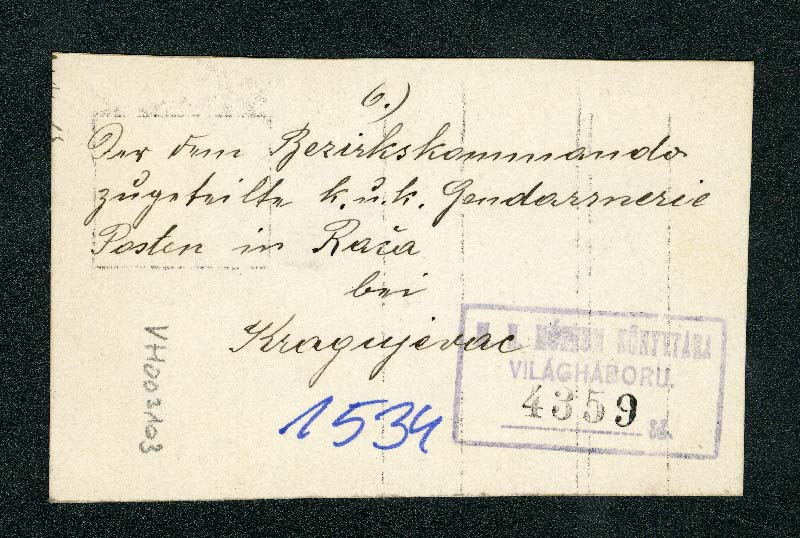 6.)
Der dem Bezirkskommando
zugeteilte k.u.k. Gendarmerie
Posten in Rača
bei
Kragujevac
N. MÚZEUM KÖNYVTÁRA
VILÁGHÁBORU.
4359
1534
VH003/03